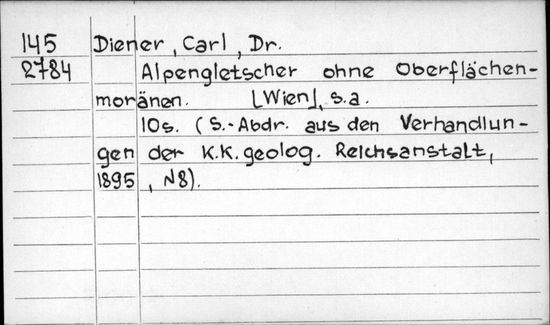 145 Diener, Carl, Dr.
2784 Alpengletscher ohne Oberflächen-
moränen. [Wien], s.a.
10s. (S.-Abdr. aus den Verhandlun-
gen der K.K. geolog. Reichsanstalt,
1895, N8).